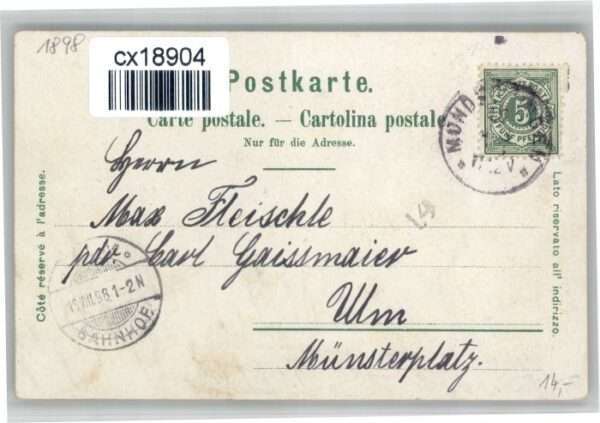 1898
cx18904
Postkarte.
Carte postale. — Cartolina postale
Nur für die Adresse.
Herrn
Max Fleischle
pdr. Carl Gaissmaier
Ulm
Münsterplatz.
Côté réservé à l'adresse.
Lato riservato all' indirizzo.
5
98.1-2N
BAHNHOF
14
14,-